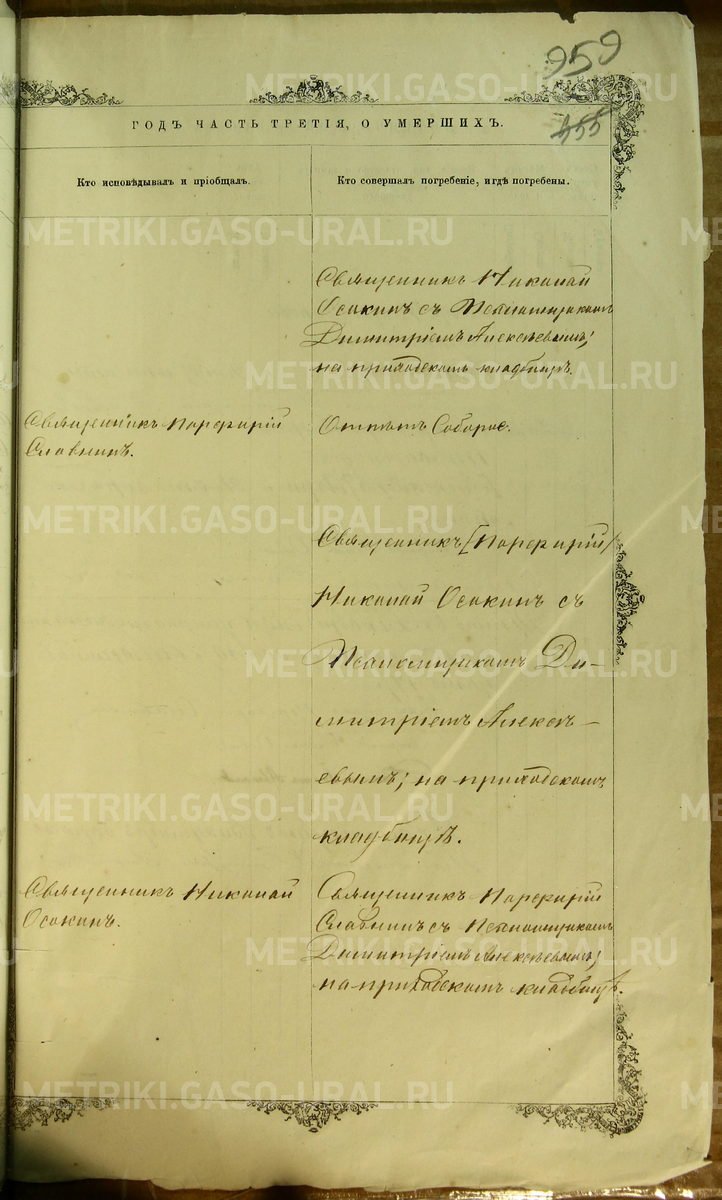 959
455
ГОДЪ ЧАСТЬ ТРЕТІЯ, О УМЕРШИХЪ.
Кто исповѣдывалъ и пріобщалъ.
Кто совершалъ погребеніе, и гдѣ погребены.
Священникъ Николай
Осокинъ съ Псаломщикомъ
Димитріемъ Алексѣевымъ;
на приходскомъ кладбищѣ.
Священникъ Порфирій
Славнинъ.
Отпѣтъ Соборне.
Священникъ [Порфирій]
Николай Осокинъ съ
Псаломщикомъ Ди-
митріемъ Алексѣ-
евымъ; на приходскомъ
кладбищѣ.
Священникъ Николай
Осокинъ.
Священникъ Порфирій
Славнинъ съ Псаломщикомъ
Димитріемъ Алексѣевымъ;
на приходскомъ кладбищѣ.
METRIKI.GASO-URAL.RU